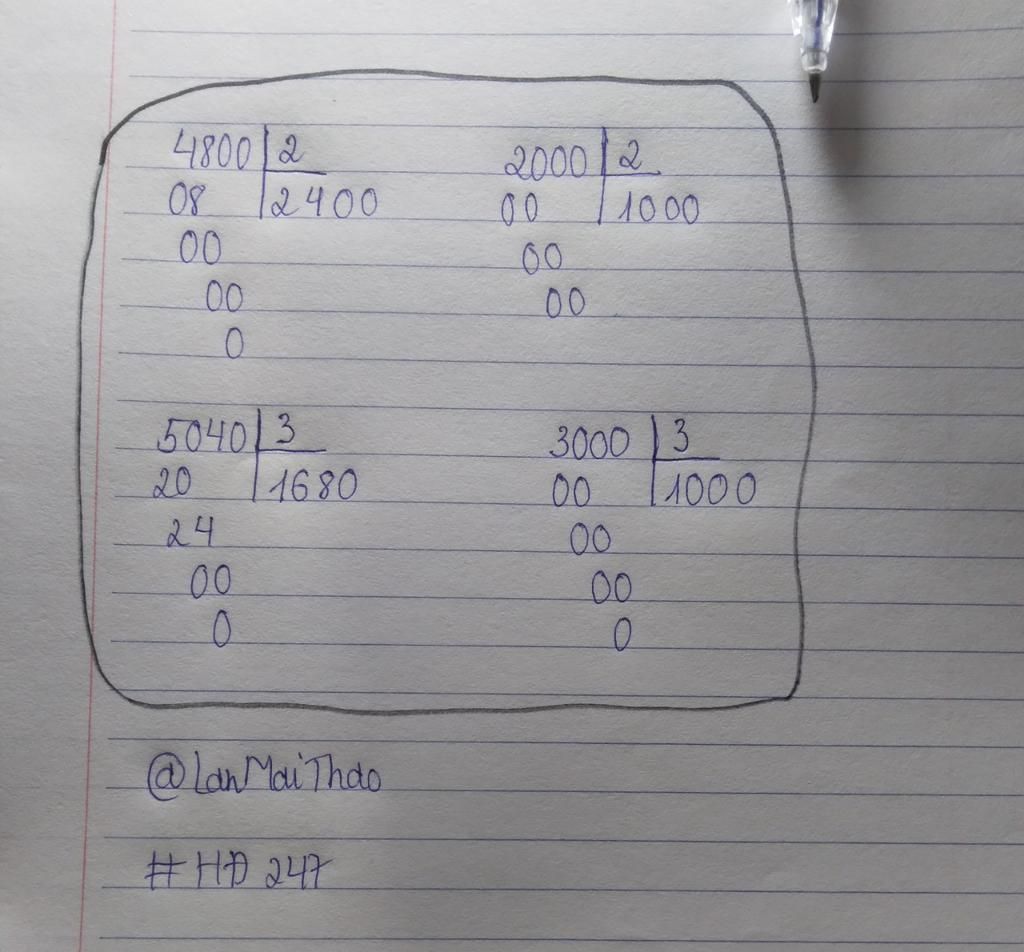 4800 2
08 2400
00
00
0
2000 2
00 1000
00
00
5040 3
20 1680
24
00
0
3000 3
00 1000
00
00
0
@LanMaiThao
#HĐ 247